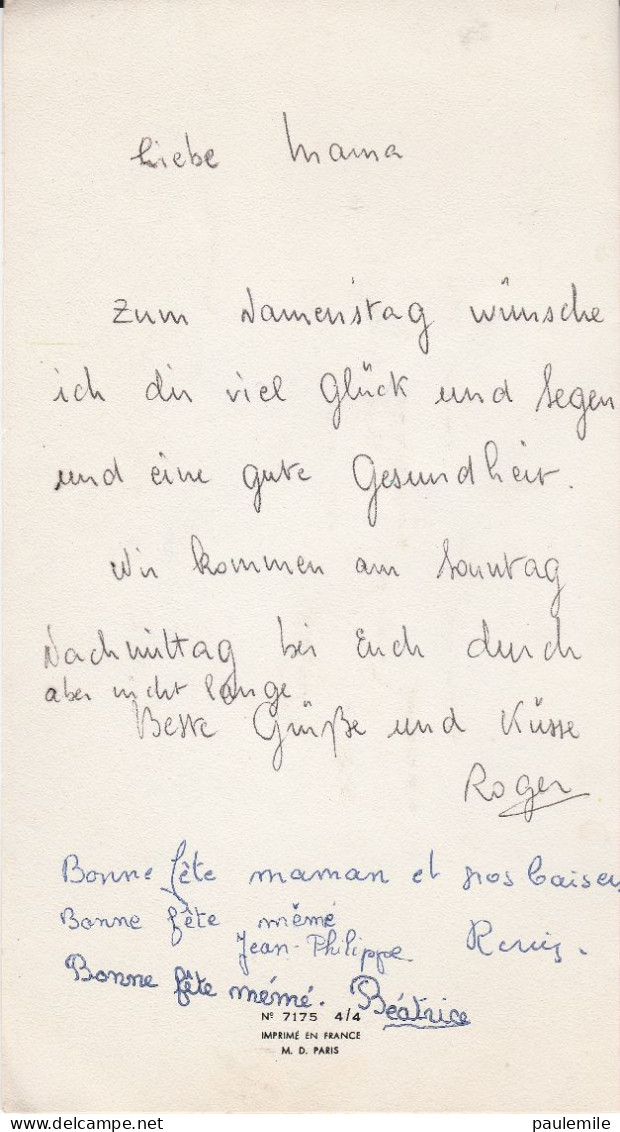 Liebe Mama
Zum Namenstag wünsche
ich dir viel Glück und Segen
und eine gute Gesundheit.
Wir kommen am Sonntag
Nachmittag bei Euch durch
aber nicht lange
Beste Grüße und Küsse
Roger
Bonne fête maman et gros baisers
Bonne fête mémé
Jean-Philippe
Bonne fête mémé. Béatrice
Nº 7175 4/4
IMPRIMÉ EN FRANCE
M. D. PARIS
paulemile